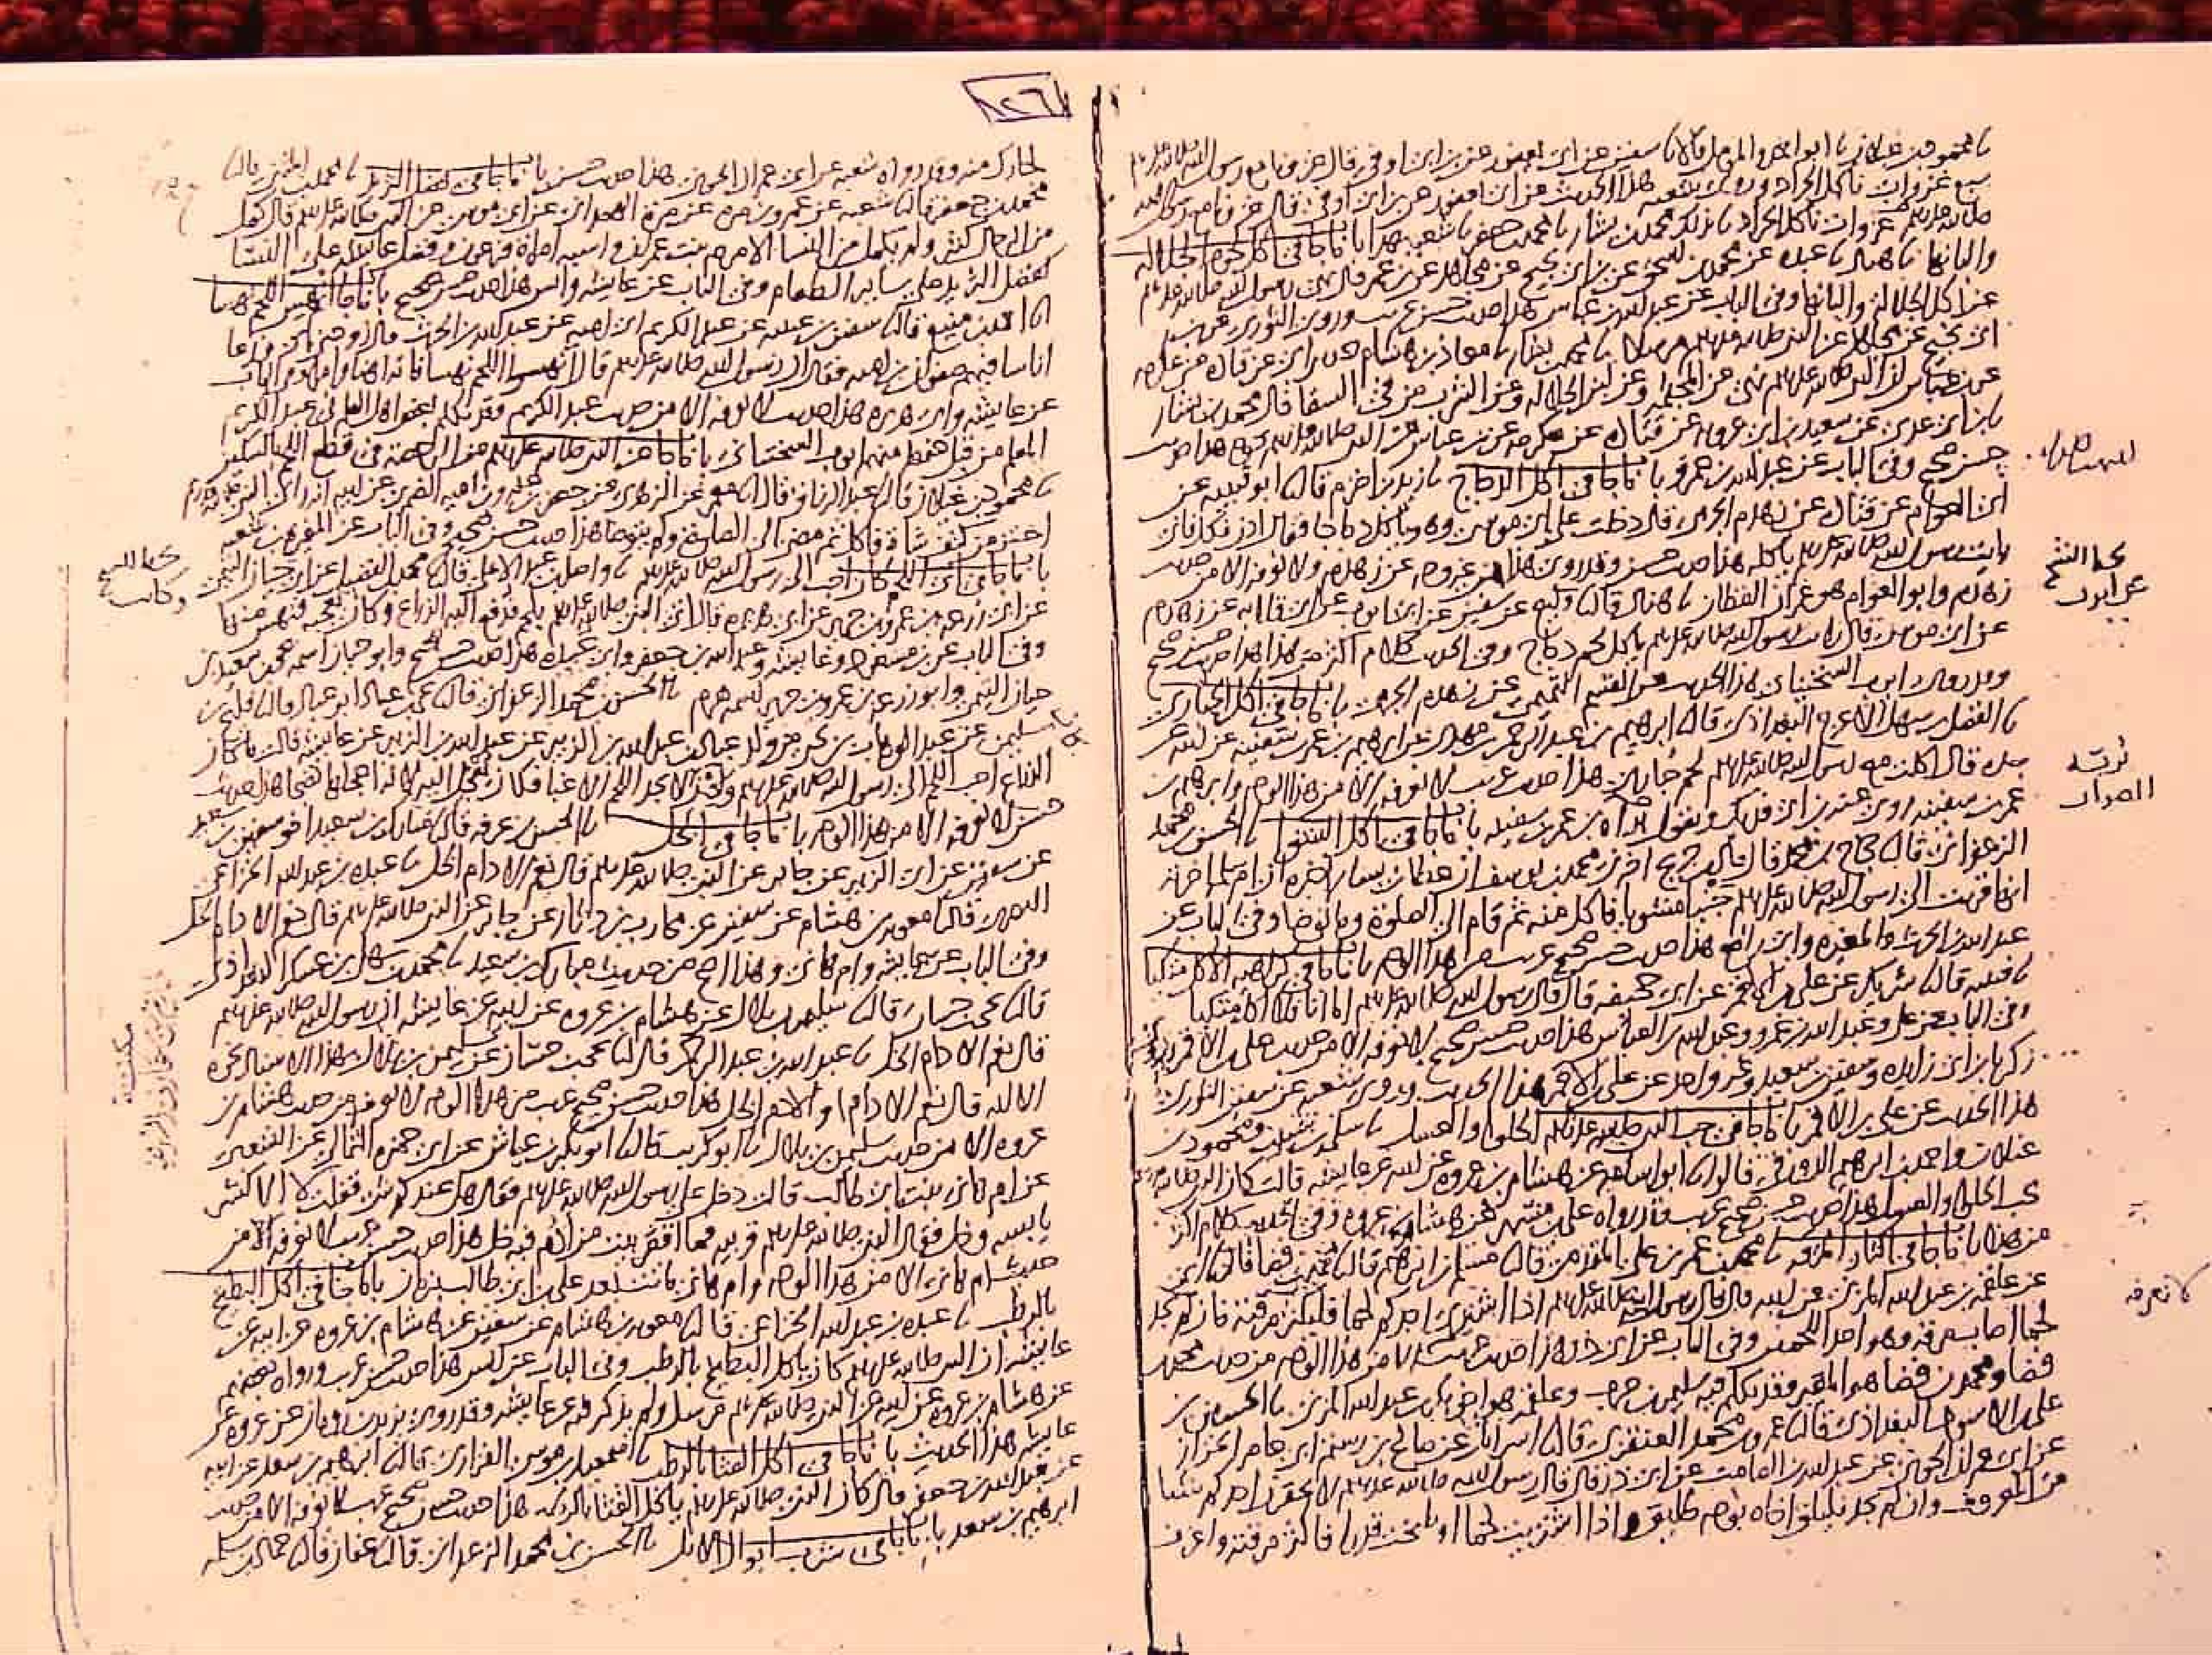 سبع غزوات ناكل الجراد وروى شعبة هذا الحديث عن ابن ابي اوفى قال غزونا مع رسول الله
صلى الله عليه وسلم غزوات ناكل الجراد نا بذلك محمد بن بشار نا محمد بن جعفر نا شعبة بهذا باب ما جا في اكل لحوم الجلاله
والبانها نا هناد نا عبده عن محمد بن اسحق عن ابن ابي نجيح عن مجاهد عن ابن عمر قال نهى رسول الله صلى الله عليه وسلم
عن اكل الجلاله والبانها وفي الباب عن عبد الله بن عباس هذا حديث حسن غريب وروى الثوري عن
ابن ابي نجيح عن مجاهد عن النبي صلى الله عليه وسلم مرسلا نا محمد بن بشار نا معاذ بن هشام عن قتاده عن عكرمه
عن ابن عباس ان النبي صلى الله عليه وسلم نهى عن المجثمه وعن لبن الجلاله وعن الشرب من في السقا قال محمد بن بشار
نا ابن ابي عدي عن سعيد بن ابي عروبه عن قتاده عن عكرمه عن ابن عباس عن النبي صلى الله عليه وسلم نحوه هذا حديث
حسن صحيح وفي الباب عن عبد الله بن عمرو باب ما جا في اكل الدجاج نا زيد بن اخزم قال نا ابو قتيبه عن
ابي العوام عن قتاده عن زهدم الجرمي قال دخلت على ابي موسى وهو ياكل دجاجا فقال ادن فكل فاني
رايت رسول الله صلى الله عليه وسلم ياكله هذا حديث حسن وقد روي هذا من غير وجه عن زهدم ولا نعرفه الا من حديث
زهدم وابو العوام هو عمران القطان نا هناد قال نا وكيع عن سفين عن ايوب عن ابي قلابه عن زهدم
عن ابي موسى قال رايت رسول الله صلى الله عليه وسلم ياكل لحم دجاج وفي الحديث كلام اكثر من هذا هذا حديث حسن صحيح
وقد روى ايوب السختياني هذا الحديث عن القسم التميمي عن زهدم الجرمي باب ما جا في اكل الحباري
نا الفضل بن سهل الاعرج البغدادي قال نا ابراهيم بن عبد الرحمن بن مهدي عن ابراهيم بن عمر بن سفينه عن ابيه عن
جده قال اكلت مع رسول الله صلى الله عليه وسلم لحم حباري هذا حديث غريب لا نعرفه الا من هذا الوجه وابرهيم بن
عمر بن سفينه روى عنه ابن ابي فديك ويقول بريه بن عمر بن سفينه باب ما جا في اكل الشوا نا الحسن بن محمد
الزعفراني قال نا حجاج بن محمد قال قال ابن جريج اخبرني محمد بن يوسف ان عطا بن يسار اخبره ان ام سلمه اخبرته
انها قربت الى رسول الله صلى الله عليه وسلم جنبا مشويا فاكل منه ثم قام الى الصلوة وما توضا وفي الباب عن
عبد الله بن الحرث والمغيره وابي رافع هذا حديث حسن صحيح غريب من هذا الوجه باب ما جا في كراهيه الاكل متكيا
نا قتيبه قال نا شريك عن علي بن الاقمر عن ابي جحيفه قال قال رسول الله صلى الله عليه وسلم اما انا فلا اكل متكيا
وفي الباب عن علي وعبد الله بن عمرو وعبد الله بن العباس هذا حديث حسن صحيح لا نعرفه الا من حديث علي بن الاقمر وروى
زكريا بن ابي زايده وسفين بن سعيد وغير واحد عن علي بن الاقمر هذا الحديث وروى شعبه عن سفين الثوري
هذا الحديث عن علي بن الاقمر باب ما جا في حب النبي صلى الله عليه وسلم الحلوا والعسل نا سلمه بن شبيب ومحمود بن
غيلان واحمد بن ابرهيم الدورقي قالوا نا ابو اسامه عن هشام بن عروه عن ابيه عن عايشه قالت كان النبي صلى الله عليه وسلم
يحب الحلوا والعسل هذا حديث حسن صحيح غريب وقد رواه علي بن مسهر عن هشام بن عروه وفي الحديث كلام اكثر
من هذا باب ما جا في اكثار المرقه نا محمد بن عمر بن علي المقدمي قال نا مسلم بن ابرهيم قال نا محمد بن فضا قال نا ابي
عن علقمه بن عبد الله المزني عن ابيه قال قال رسول الله صلى الله عليه وسلم اذا اشترى احدكم لحما فليكثر مرقته فان لم يجد
لحما اصاب مرقه وهو احد اللحمين وفي الباب عن ابي ذر هذا حديث غريب لا نعرفه الا من هذا الوجه من حديث محمد بن
فضا ومحمد بن فضا هو المعبر وقد تكلم فيه سليمن بن حرب وعلقمه هو اخو بكر بن عبد الله المزني نا الحسين بن
علي بن الاسود البغدادي قال نا عمرو بن محمد العنقزي قال نا اسرائيل عن صالح بن رستم ابي عامر الخزاز
عن ابي عمران الجوني عن عبد الله بن الصامت عن ابي ذر قال قال رسول الله صلى الله عليه وسلم لا يحقرن احدكم شيئا
من المعروف وان لم يجد فليلق اخاه بوجه طليق واذا اشتريت لحما او طبخت قدرا فاكثر مرقته واغرف
لا نعرفه
٨٢٦
لجارك منه وقد رواه شعبه عن ابي عمران الجوني هذا حديث حسن باب ما جا في فضل الثريد نا محمد بن المثنى قال نا
محمد بن جعفر قال نا شعبه عن عمرو بن مره عن مره الهمداني عن ابي موسى عن النبي صلى الله عليه وسلم قال كمل
من الرجال كثير ولم يكمل من النسا الا مريم بنت عمران واسيه امراة فرعون وفضل عايشه على النسا
كفضل الثريد على ساير الطعام وفي الباب عن عايشه وانس هذا حديث حسن صحيح باب ما جا انهس اللحم نهسا
نا احمد بن منيع قال نا سفين بن عيينه عن عبد الكريم ابي اميه عن عبد الله بن الحرث قال زوجني ابي فدعا
اناسا فيهم صفوان بن اميه فقال ان رسول الله صلى الله عليه وسلم قال انهسوا اللحم نهسا فانه اهنا وامرا وفي الباب
عن عايشه وابي هريره هذا حديث لا نعرفه الا من حديث عبد الكريم وقد تكلم بعض اهل العلم في عبد الكريم
المعلم من قبل حفظه منهم ايوب السختياني باب ما جا عن النبي صلى الله عليه وسلم من الرخصة في قطع اللحم بالسكين
نا محمود بن غيلان قال نا عبد الرزاق قال نا معمر عن الزهري عن جعفر بن عمرو بن اميه الضمري عن ابيه انه راى النبي صلى الله عليه وسلم
احتز من كتف شاة فاكل ثم مضى الى الصلوة ولم يتوضا هذا حديث حسن صحيح وفي الباب عن المغيره بن شعبه
باب ما جا في اي اللحم كان احب الى رسول الله صلى الله عليه وسلم نا واصل بن عبد الاعلى قال نا محمد بن الفضيل عن ابي حيان التيمي
عن ابي زرعه بن عمرو بن جرير عن ابي هريره قال اتي النبي صلى الله عليه وسلم بلحم فدفع اليه الذراع وكان يعجبه فنهس منها
وفي الباب عن ابن مسعود وعايشه وعبد الله بن جعفر وابي عبيده هذا حديث حسن صحيح وابو حيان اسمه يحيى بن سعيد بن
حيان التيمي وابو زرعه بن عمرو بن جرير اسمه هرم نا الحسن بن محمد الزعفراني قال نا يحيى بن عباد ابو عباد قال نا فليح بن
سليمن عن عبد الوهاب بن يحيى من ولد عباد بن عبد الله بن الزبير عن عبد الله بن الزبير عن عايشه قالت ما كان
الذراع احب اللحم الى رسول الله صلى الله عليه وسلم ولكن كان لا يجد اللحم الا غبا فكان يعجل اليه لانه اعجلها نضجا هذا حديث
حسن لا نعرفه الا من هذا الوجه باب ما جا في الخل نا الحسن بن عرفه قال نا مبارك بن سعيد اخو سفين بن سعيد
عن سفين عن ابي الزبير عن جابر عن النبي صلى الله عليه وسلم قال نعم الادام الخل نا عبده بن عبد الله الخزاعي
البصري قال نا معويه بن هشام عن سفين عن محارب بن دثار عن جابر عن النبي صلى الله عليه وسلم قال نعم الادام الخل
وفي الباب عن عايشه وام هاني وهذا اصح من حديث مبارك بن سعيد نا محمد بن سهل بن عسكر البغدادي
قال نا يحيى بن حسان قال نا سليمن بن بلال عن هشام بن عروه عن ابيه عن عايشه ان رسول الله صلى الله عليه وسلم
قال نعم الادام الخل نا عبد الله بن عبد الرحمن قال نا يحيى بن حسان عن سليمن بن بلال بهذا الاسناد نحوه
الا انه قال نعم الادام او الادم الخل هذا حديث حسن صحيح غريب من هذا الوجه لا نعرفه من حديث هشام بن
عروه الا من حديث سليمن بن بلال نا ابو كريب قال نا ابو بكر بن عياش عن ابي حمزه الثمالي عن الشعبي
عن ام هاني بنت ابي طالب قالت دخل علي رسول الله صلى الله عليه وسلم فقال هل عندكم شي فقلت لا الا كسر
يابسه وخل فقال النبي صلى الله عليه وسلم قربيه فما اقفر بيت من ادم فيه خل هذا حديث حسن غريب لا نعرفه الا من
حديث ام هاني الا من هذا الوجه وام هاني ماتت بعد علي بن ابي طالب بزمان باب ما جا في اكل البطيخ
بالرطب نا عبده بن عبد الله الخزاعي قال نا معويه بن هشام عن سفين عن هشام بن عروه عن ابيه عن
عايشه ان النبي صلى الله عليه وسلم كان ياكل البطيخ بالرطب وفي الباب عن انس هذا حديث حسن غريب ورواه بعضهم
عن هشام بن عروه عن ابيه عن النبي صلى الله عليه وسلم مرسل ولم يذكر فيه عن عايشه وقد روى يزيد بن رومان عن عروه عن
عايشه هذا الحديث باب ما جا في اكل القثا بالرطب نا اسمعيل بن موسى الفزاري قال نا ابرهيم بن سعد عن ابيه
عن عبد الله بن جعفر قال كان النبي صلى الله عليه وسلم ياكل القثا بالرطب هذا حديث حسن صحيح غريب لا نعرفه الا من حديث
ابرهيم بن سعد باب ما جا في شرب ابوال الابل نا الحسن بن محمد الزعفراني قال نا عفان قال نا حماد بن سلمه